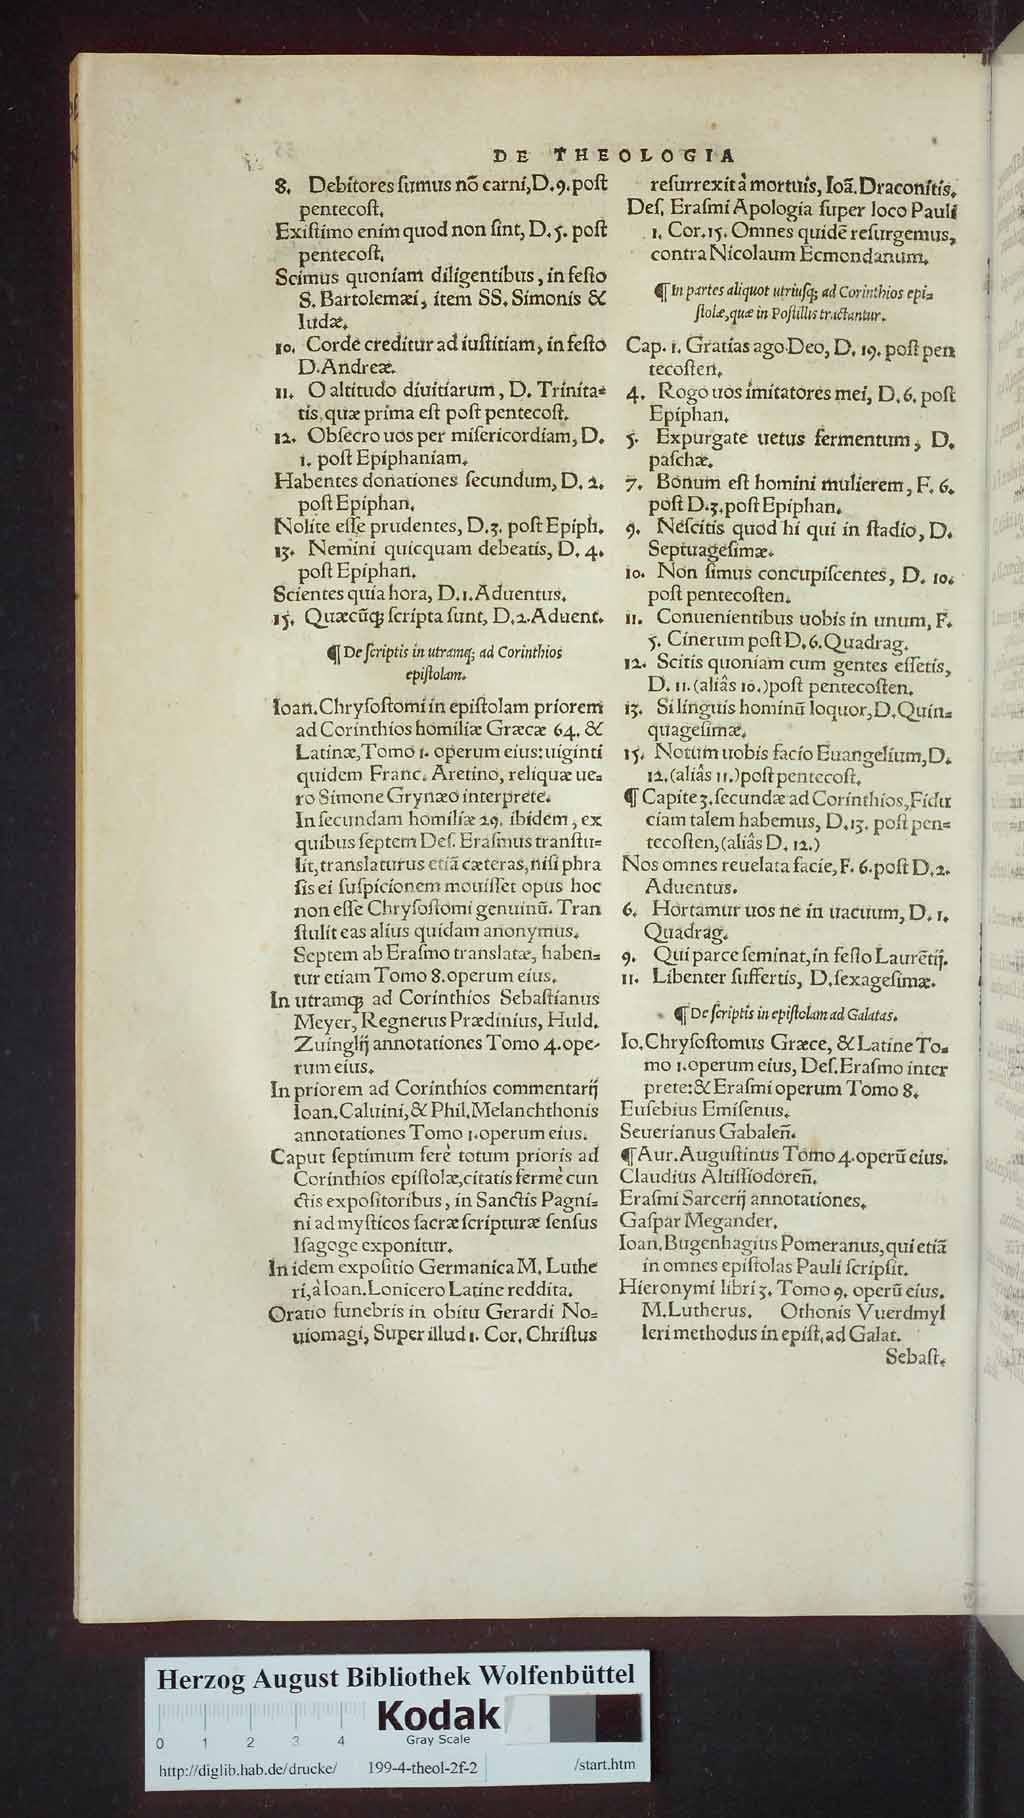 DE THEOLOGIA
8. Debitores ſumus nõ carni, D. 9. poſt
pentecoſt.
Exiſtimo enim quod non ſint, D. 5. poſt
pentecoſt.
Scimus quoniam diligentibus, in feſto
S. Bartolemæi, item SS. Simonis &
Iudæ.
10. Corde creditur ad iuſtitiam, in feſto
D. Andreæ.
11. O altitudo diuitiarum, D. Trinita=
tis, quæ prima eſt poſt pentecoſt.
12. Obſecro uos per miſericordiam, D.
1. poſt Epiphaniam.
Habentes donationes ſecundum, D. 2.
poſt Epiphan.
Nolite eſſe prudentes, D. 3. poſt Epiph.
13. Nemini quicquam debeatis, D. 4.
poſt Epiphan.
Scientes quia hora, D. 1. Aduentus.
15. Quæcũq; ſcripta ſunt, D. 2. Aduent.
¶ De ſcriptis in utramq; ad Corinthios
epiſtolam.
Ioan. Chryſoſtomi in epiſtolam priorem
ad Corinthios homiliæ Græcæ 64. &
Latinæ, Tomo 1. operum eius: uiginti
quidem Franc. Aretino, reliquæ ue=
ro Simone Grynæo interprete.
In ſecundam homiliæ 29. ibidem, ex
quibus ſeptem Deſ. Eraſmus tranſtu=
lit, translaturus etiã cæteras, niſi phra
ſis ei ſuſpicionem mouiſſet opus hoc
non eſſe Chryſoſtomi genuinũ. Tran
ſtulit eas alius quidam anonymus.
Septem ab Eraſmo translatæ, haben=
tur etiam Tomo 8. operum eius.
In utramq; ad Corinthios Sebaſtianus
Meyer, Regnerus Prædinius, Huld.
Zuinglij annotationes Tomo 4. ope-
rum eius.
In priorem ad Corinthios commentarij
Ioan. Caluini, & Phil. Melanchthonis
annotationes Tomo 1. operum eius.
Caput ſeptimum ferè totum prioris ad
Corinthios epiſtolæ, citatis fermè cun
ctis expoſitoribus, in Sanctis Pagni-
ni ad myſticos ſacræ ſcripturæ ſenſus
Iſagoge exponitur.
In idem expoſitio Germanica M. Luthe
ri, à Ioan. Lonicero Latine reddita.
Oratio funebris in obitu Gerardi No=
uiomagi, Super illud 1. Cor. Chriſtus
reſurrexit à mortuis, Ioã. Draconitis.
Deſ. Eraſmi Apologia ſuper loco Pauli
1. Cor. 15. Omnes quidẽ reſurgemus,
contra Nicolaum Ecmondanum.
¶ In partes aliquot utriuſq; ad Corinthios epi=
ſtolæ, quæ in Poſtillis tractantur.
Cap. 1. Gratias ago Deo, D. 19. poſt pen
tecoſten.
4. Rogo uos imitatores mei, D. 6. poſt
Epiphan.
5. Expurgate uetus fermentum, D.
paſchæ.
7. Bonum eſt homini mulierem, F. 6.
poſt D. 3. poſt Epiphan.
9. Neſcitis quod hi qui in ſtadio, D.
Septuageſimæ.
10. Non ſimus concupiſcentes, D. 10.
poſt pentecoſten.
11. Conuenientibus uobis in unum, F.
5. Cinerum poſt D. 6. Quadrag.
12. Scitis quoniam cum gentes eſſetis,
D. 11. (aliâs 10.) poſt pentecoſten.
13. Si linguis hominũ loquor, D. Quin=
quageſimæ.
15. Notum uobis facio Euangelium, D.
12. (aliâs 11.) poſt pentecoſt.
¶ Capite 3. ſecundæ ad Corinthios, Fidu
ciam talem habemus, D. 13. poſt pen=
tecoſten, (aliâs D. 12.)
Nos omnes reuelata facie, F. 6. poſt D. 2.
Aduentus.
6. Hortamur uos ne in uacuum, D. 1.
Quadrag.
9. Qui parce ſeminat, in feſto Laurẽtij.
11. Libenter ſuffertis, D. ſexageſimæ.
¶ De ſcriptis in epiſtolam ad Galatas.
Io. Chryſoſtomus Græce, & Latine To=
mo 1. operum eius, Deſ. Eraſmo inter
prete: & Eraſmi operum Tomo 8.
Euſebius Emiſenus.
Seuerianus Gabaleñ.
¶ Aur. Auguſtinus Tomo 4. operũ eius.
Claudius Altiſſiodoreñ.
Eraſmi Sarcerij annotationes.
Gaſpar Megander.
Ioan. Bugenhagius Pomeranus, qui etiã
in omnes epiſtolas Pauli ſcripſit.
Hieronymi libri 3. Tomo 9. operũ eius.
M. Lutherus. Othonis Vuerdmyl
leri methodus in epiſt. ad Galat.
Sebaſt.
Herzog August Bibliothek Wolfenbüttel
Kodak
Gray Scale
0 1 2 3 4
http://diglib.hab.de/drucke/ 199-4-theol-2f-2 /start.htm